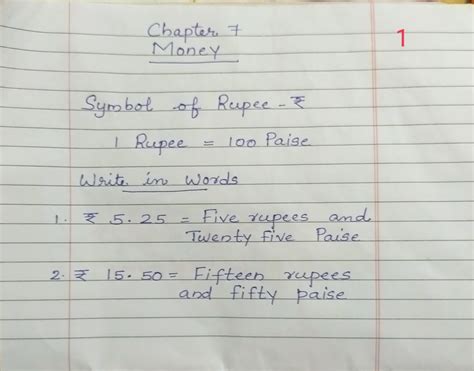 Chapter 7
1
Money
Symbol of Rupee - ₹
1 Rupee = 100 Paise
Write in Words
1. ₹ 5.25 = Five rupees and
Twenty five Paise
2. ₹ 15.50 = Fifteen rupees
and fifty paise